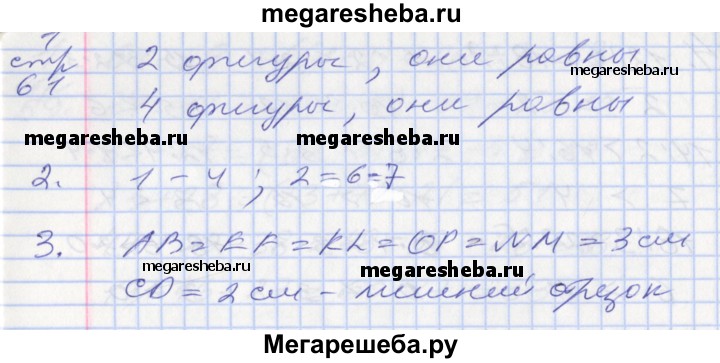 megaresheba.ru
1
стр 2 фигуры, они равны
61 megaresheba.ru
4 фигуры, они равны
megaresheba.ru megaresheba.ru
2. 1 – 4 ; 2 = 6 = 7
3. AB = EF = KL = OP = NM = 3 см
megaresheba.ru megaresheba.ru
CD = 2 см – лишний отрезок
Мегарешеба.ру